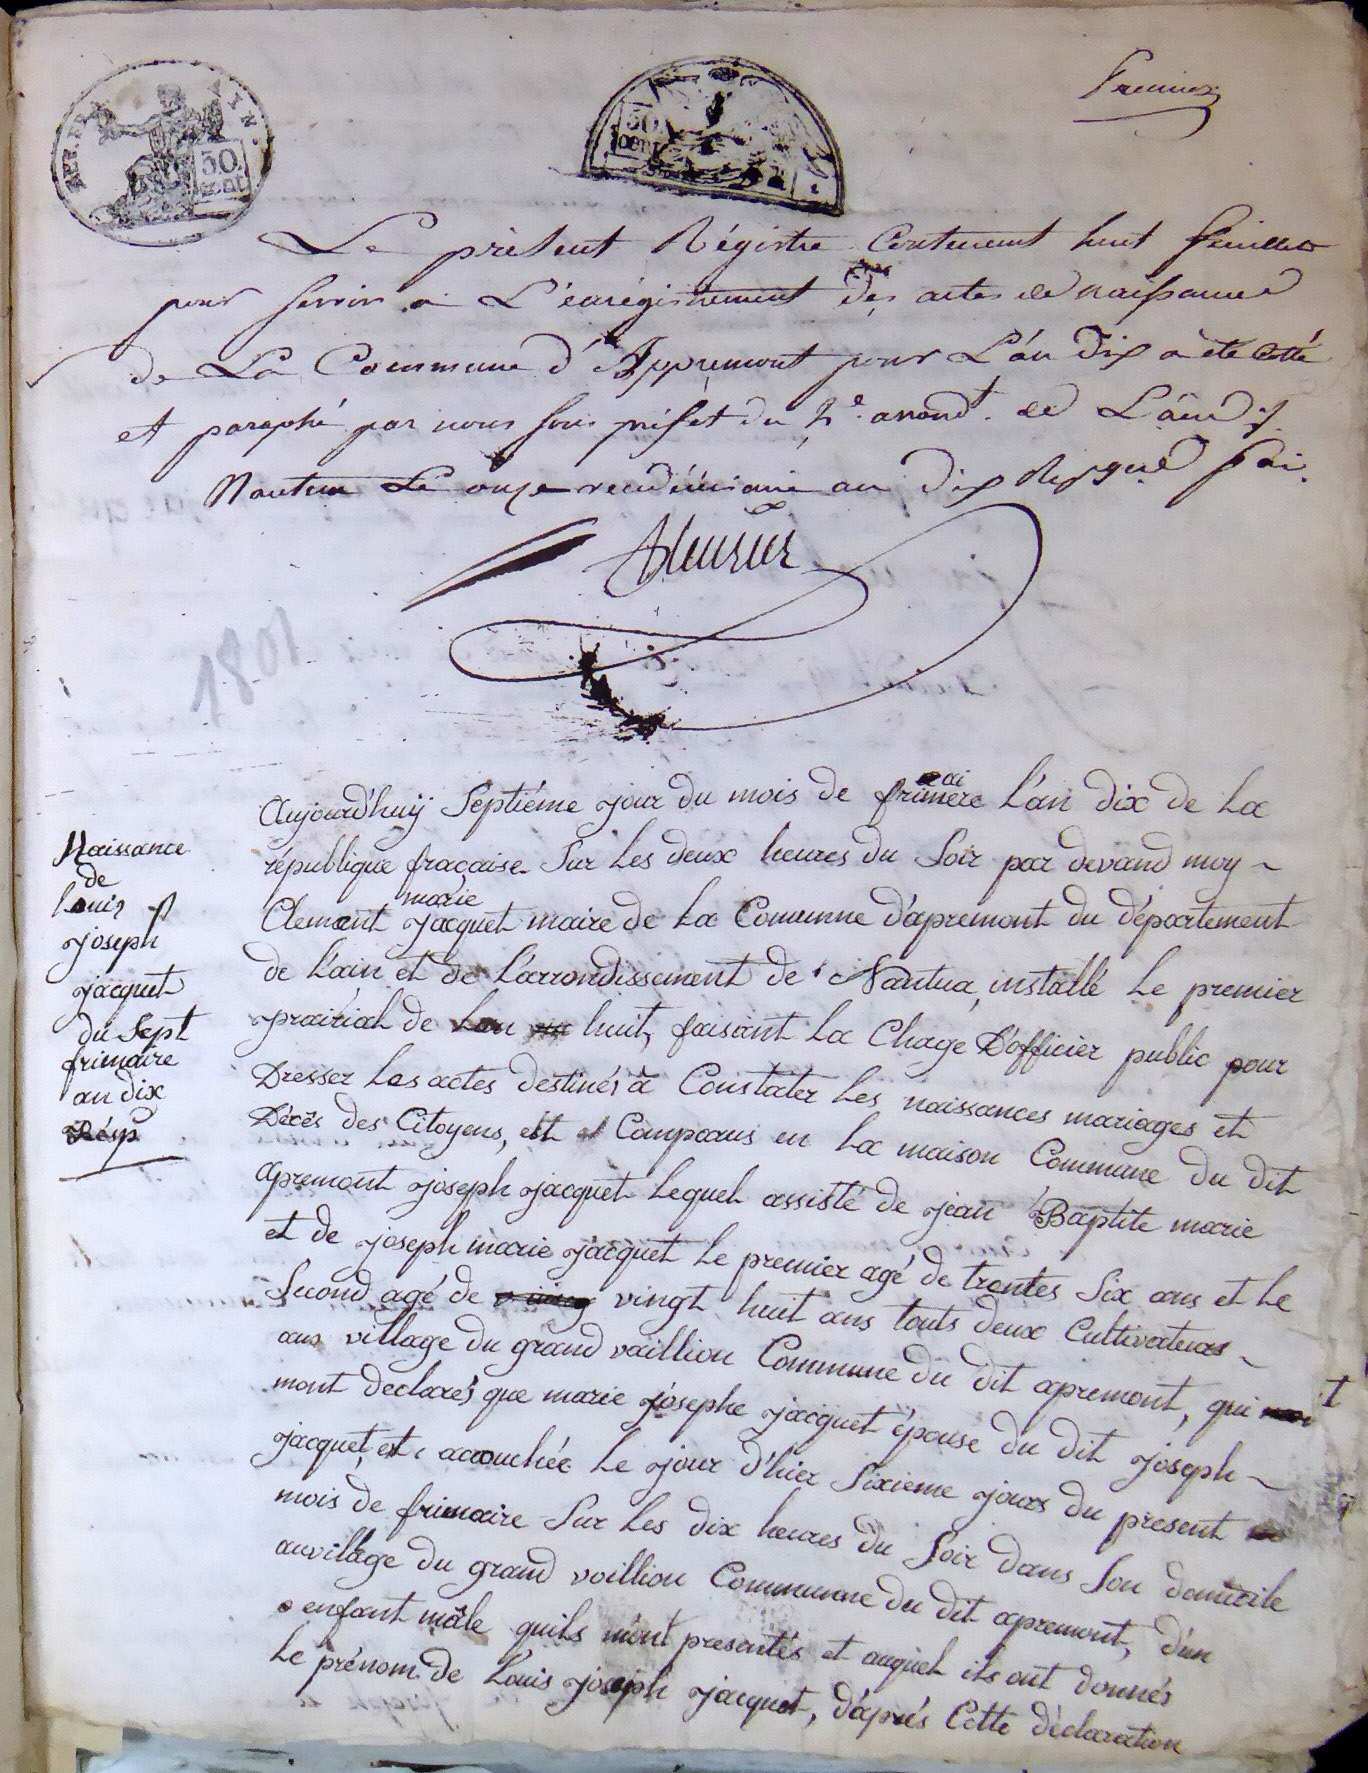 Premier
50 CENT
Le présent Régistre Contenant huit feuillets
pour servir a L'enrégistrement des actes de naissance
de La Commune d'Appremont pour L'an dix a été Cotté
et paraphé par nous sous préfet du 2e arrondt. de L'ain. à
Nantua Le onze vendémiaire an dix
1801
Naissance
de
louis
joseph
jacquet
du Sept
frimaire
an dix
Aujourd'huÿ Septiéme jour du mois de frimere l'an dix de La
république fraçaise Sur Les deux heures du Soir par devand moy
Clemant marie jacquet maire de La Comunne d'apremont du département
de L'ain et de L'arrondissement de Nantua, installé Le premier
prairial de Lan huit, faisant La Chage D'officier public pour
Dresser Les actes destinés à Constater Les naissances mariages et
Décès des Citoyens, est Comparus en La maison Commune du dit
apremont joseph jacquet Lequel assisté de jean Baptite marie
et de joseph marie jacquet Le premier agé de trentes Six ans et Le
Second agé de vingt huit ans touts deux Cultivateurs
aux village du grand vaillion Commune du dit apremont, qui
mont declarés que marie josephe jacquet épouse du dit joseph
jacquet, est accouchée Le jour d'hier Sixieme jours du present
mois de frimaire Sur Les dix heures du Soir dans Son domicile
au village du grand voillion Commune du dit apremont, d'un
enfant mâle quils m'ont presentés et auquel ils ont donnés
Le prénom de Louis joseph jacquet, d'aprés Cette déclaration